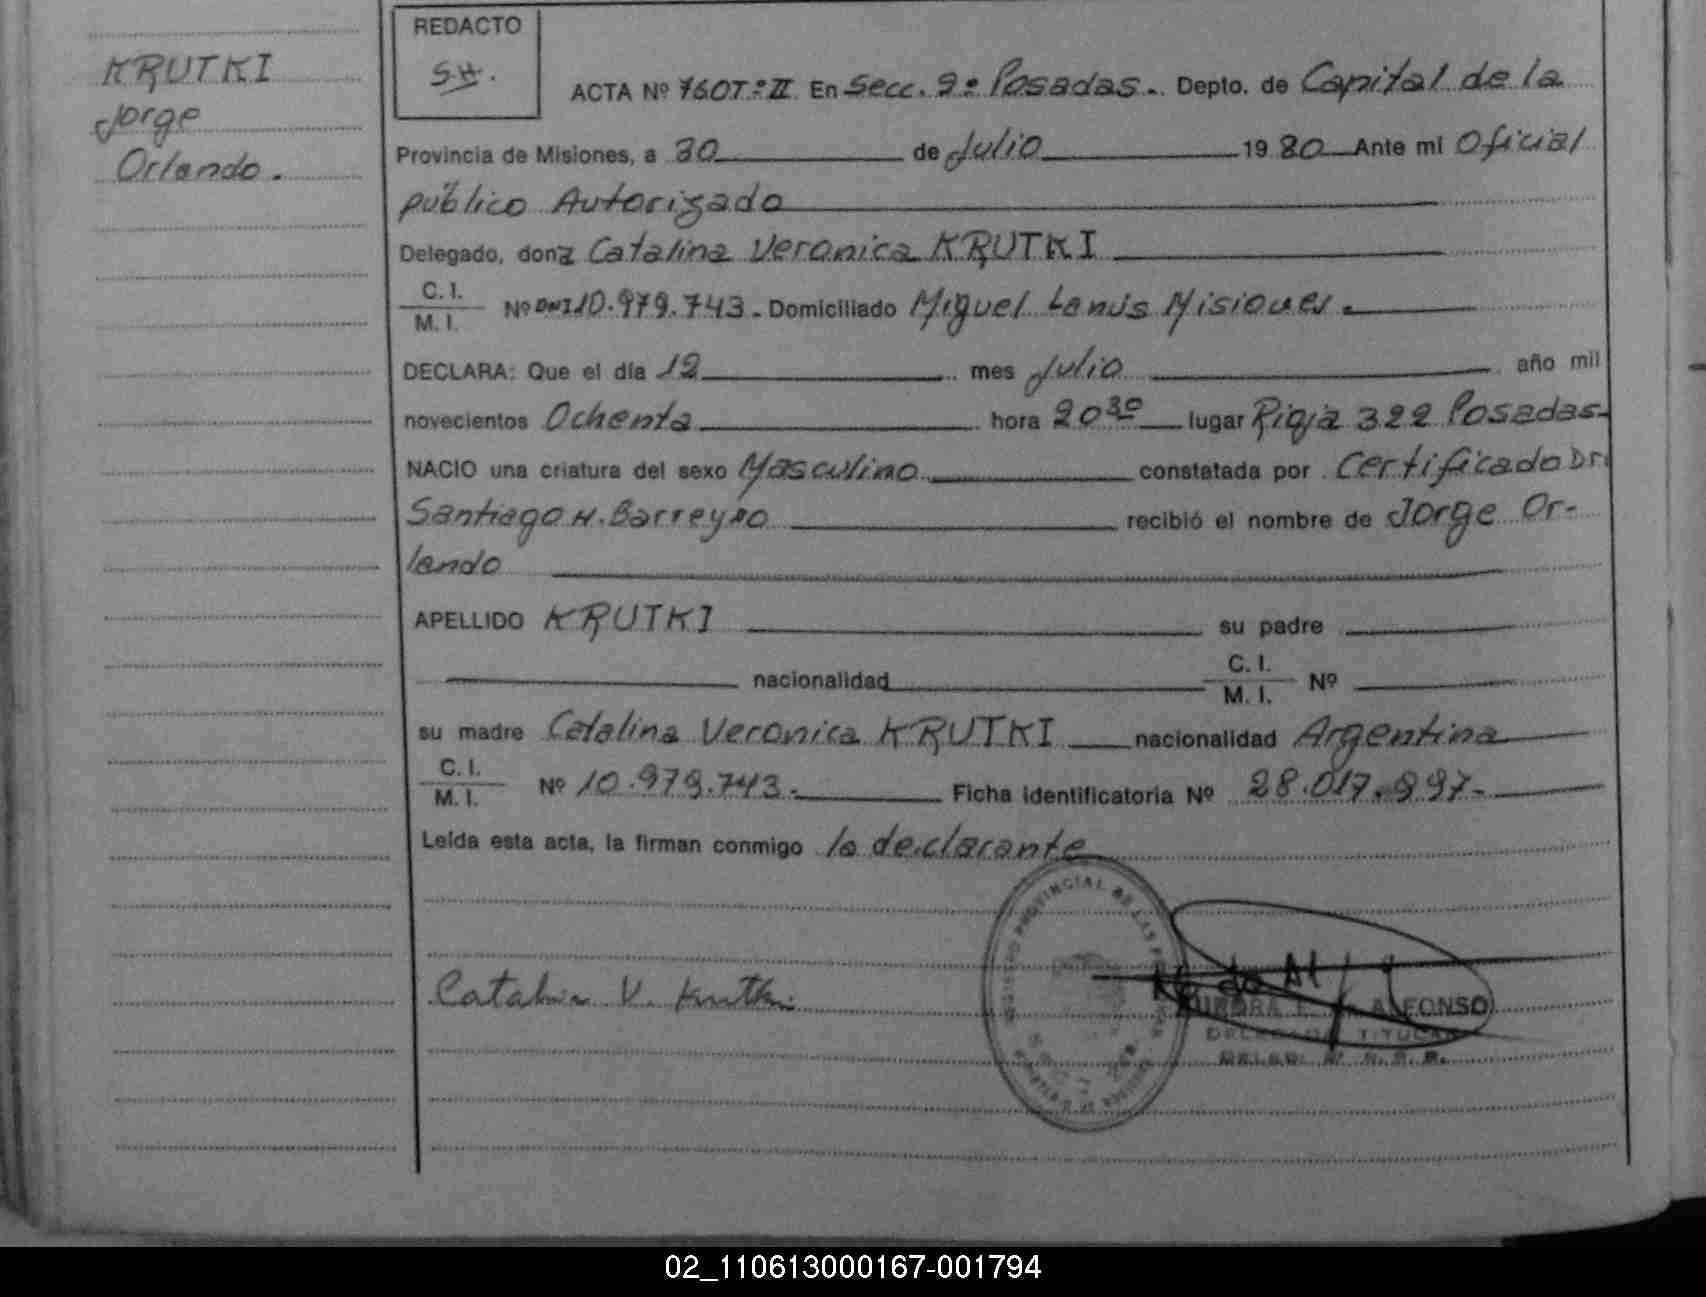 KRUTKI
Jorge
Orlando.
REDACTO
S.H.
ACTA Nº 760T:II En Secc. 9ª Posadas. Depto. de Capital de la
Provincia de Misiones, a 30 de Julio 1980 Ante mi Oficial
público Autorizado
Delegado, dona Catalina Veronica KRUTKI
C. I.
M. I. Nº DNI 10.979.743. Domiciliado Miguel Lanús Misiones.
DECLARA: Que el día 12 mes Julio año mil
novecientos Ochenta hora 20 30 lugar Rioja 322 Posadas-
NACIO una criatura del sexo Masculino constatada por Certificado Dr.
Santiago H. Barreyro recibió el nombre de Jorge Or-
lando
APELLIDO KRUTKI su padre
nacionalidad C. I.
M. I. Nº
su madre Catalina Veronica KRUTKI nacionalidad Argentina
C. I.
M. I. Nº 10.979.743. Ficha Identificatoria Nº 28.017.997-
Leída esta acta, la firman conmigo la declarante
Catalina V. Krutki
ALFONSO
DELEGADO TITULAR
02_110613000167-001794